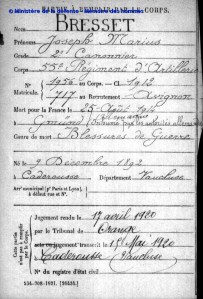 © Ministère de la défense - Mémoire des hommes
PARTIE À REMPLIR PAR LE CORPS.
BRESSET
Prénoms Joseph Marius
Grade 2e Canonnier
Corps 55e Régiment d'Artillerie
N° 1956 au Corps. — Cl. 1912
Matricule. 717 au Recrutement Avignon
Mort pour la France le 25 Août 1914
à
Genre de mort Blessures de Guerre
Né le 9 Décembre 1892
à Caderousse Département Vaucluse
Arr^t municipal (p^r Paris et Lyon),
à défaut rue et N°.
Cette partie n'est pas à remplir par le Corps.
Jugement rendu le 17 avril 1920
par le Tribunal de Orange
jugement transcrit le 15 Mai 1920
à Caderousse Vaucluse
N° du registre d'état civil
534-708-1921. [26434.]